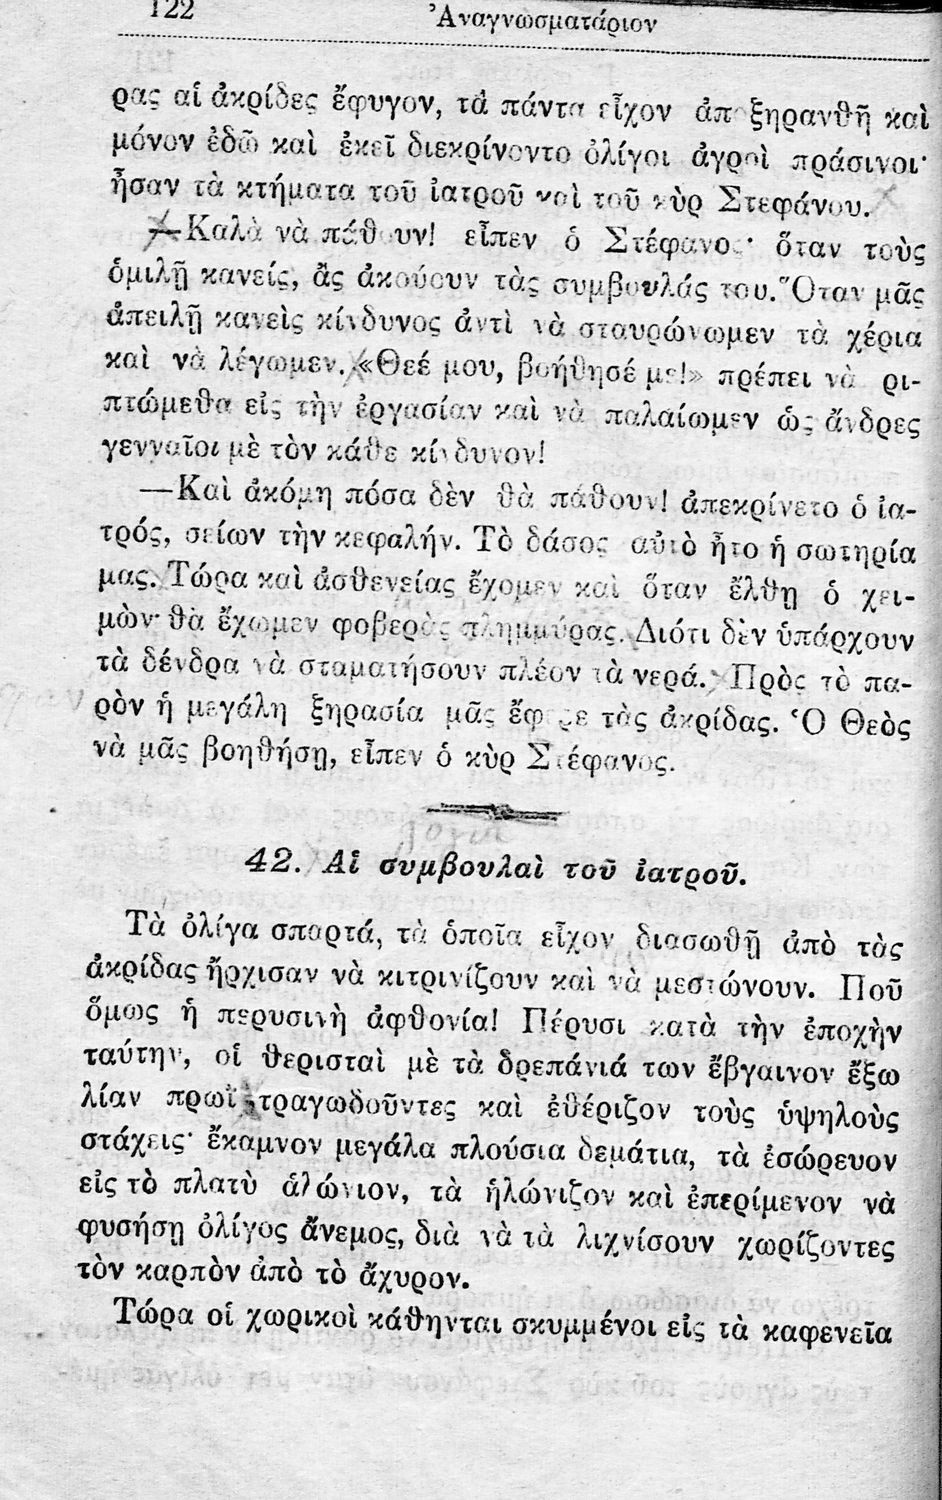 122 Ἀναγνωσματάριον
ρας αἱ ἀκρίδες ἔφυγον, τὰ πάντα εἶχον ἀποξηρανθῆ καὶ
μόνον ἐδῶ καὶ ἐκεῖ διεκρίνοντο ὀλίγοι ἀγροὶ πράσινοι·
ἦσαν τὰ κτήματα τοῦ ἰατροῦ καὶ τοῦ κὺρ Στεφάνου.
—Καλὰ νὰ πάθουν! εἶπεν ὁ Στέφανος· ὅταν τοὺς
ὁμιλῇ κανείς, ἂς ἀκούουν τὰς συμβουλάς του. Ὅταν μᾶς
ἀπειλῇ κανεὶς κίνδυνος ἀντὶ νὰ σταυρώνωμεν τὰ χέρια
καὶ νὰ λέγωμεν. «Θεέ μου, βοήθησέ με!» πρέπει νὰ ρι-
πτώμεθα εἰς τὴν ἐργασίαν καὶ νὰ παλαίωμεν ὡς ἄνδρες
γενναῖοι μὲ τὸν κάθε κίνδυνον!
—Καὶ ἀκόμη πόσα δὲν θὰ πάθουν! ἀπεκρίνετο ὁ ἰα-
τρός, σείων τὴν κεφαλήν. Τὸ δάσος αὐτὸ ἦτο ἡ σωτηρία
μας. Τώρα καὶ ἀσθενείας ἔχομεν καὶ ὅταν ἔλθῃ ὁ χει-
μὼν θὰ ἔχωμεν φοβερὰς πλημμύρας. Διότι δὲν ὑπάρχουν
τὰ δένδρα νὰ σταματήσουν πλέον τὰ νερά. Πρὸς τὸ πα-
ρὸν ἡ μεγάλη ξηρασία μᾶς ἔφερε τὰς ἀκρίδας. Ὁ Θεὸς
νὰ μᾶς βοηθήσῃ, εἶπεν ὁ κὺρ Στέφανος.
λόγια
42. Αἱ συμβουλαὶ τοῦ ἰατροῦ.
Τὰ ὀλίγα σπαρτά, τὰ ὁποῖα εἶχον διασωθῆ ἀπὸ τὰς
ἀκρίδας ἤρχισαν νὰ κιτρινίζουν καὶ νὰ μεστώνουν. Ποῦ
ὅμως ἡ περυσινὴ ἀφθονία! Πέρυσι κατὰ τὴν ἐποχὴν
ταύτην, οἱ θερισταὶ μὲ τὰ δρεπάνιά των ἔβγαινον ἔξω
λίαν πρωῒ τραγωδοῦντες καὶ ἐθέριζον τοὺς ὑψηλοὺς
στάχεις· ἔκαμνον μεγάλα πλούσια δεμάτια, τὰ ἐσώρευον
εἰς τὸ πλατὺ ἁλώνιον, τὰ ἡλώνιζον καὶ ἐπερίμενον νὰ
φυσήσῃ ὀλίγος ἄνεμος, διὰ νὰ τὰ λιχνίσουν χωρίζοντες
τὸν καρπὸν ἀπὸ τὸ ἄχυρον.
Τώρα οἱ χωρικοὶ κάθηνται σκυμμένοι εἰς τὰ καφενεῖα